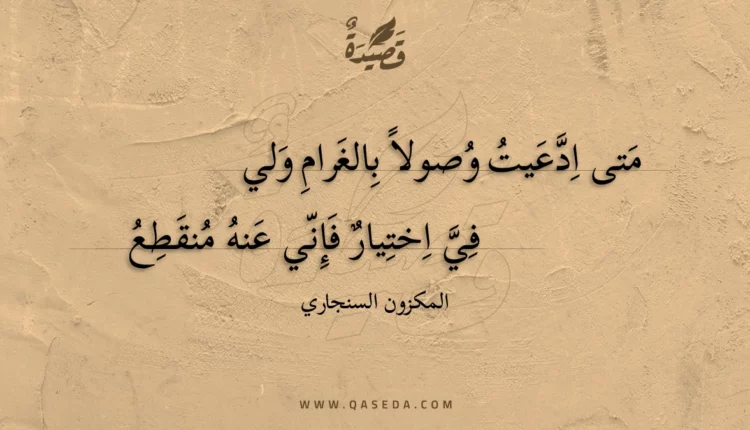 قَصِيدَةٌ
مَتى اِدَّعَيتُ وُصولاً بِالغَرامِ وَلي
فِيَّ اِختِيارٌ فَإِنّي عَنهُ مُنقَطِعُ
المكزون السنجاري
WWW.QASEDA.COM